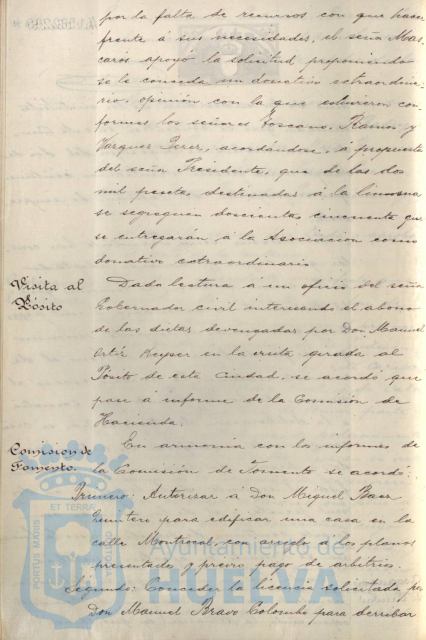 por la falta de recursos con que hacer
frente á sus necesidades, el señor Mas-
caros apoyó la solicitud proponiendo
se le conceda un donativo extraordina-
rio, opinión con la que estuvieron con-
formes los señores Toscano, Ramos y
Vazquez Perez, acordándose, á propuesta
del señor Presidente, que de las dos
mil pesetas destinadas á la limosna
se segreguen doscientas cincuenta que
se entregarán á la Asociacion como
donativo extraordinario
Visita al
Pósito
Dada lectura á un oficio del señor
Gobernador civil interesando el abono
de las dietas devengadas por Don Manuel
Ortiz Keyser en la visita girada al
Pósito de esta Ciudad, se acordó que
pase á informe de la Comisión de
Hacienda.
Comision de
Fomento.
En armonia con los informes de
la Comisión de Fomento se acordó:
Primero: Autorizar á Don Miguel Baez
Quintero para edificar una casa en la
calle Montrocal, con arreglo á los planos
presentados y previo pago de arbitrios.
Segundo: Conceder la licencia solicitada por
Don Manuel Bravo Colombo para derribar
PORTUS MARIS ET TERRAE
Ayuntamiento de
HUELVA